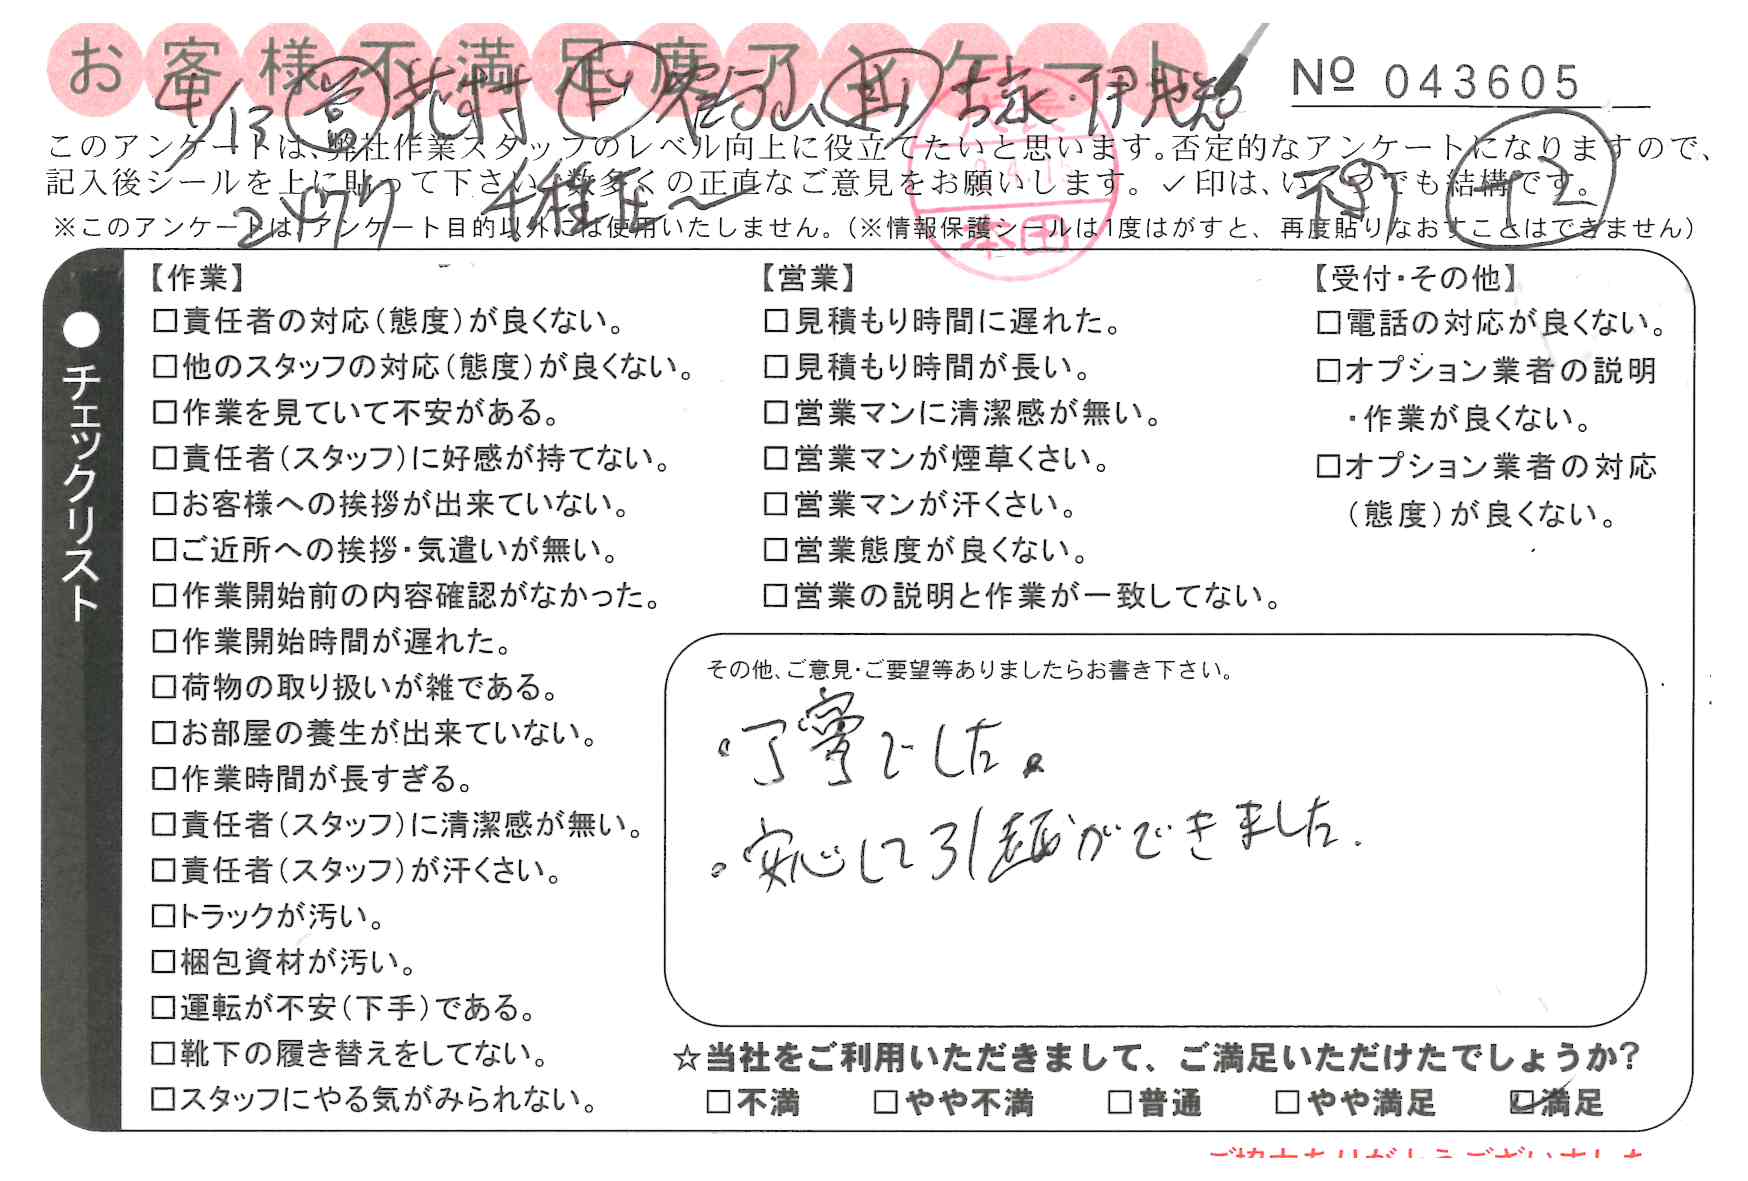 お客様不満足度アンケート
№ 043605
4/13
このアンケートは、弊社作業スタッフのレベル向上に役立てたいと思います。否定的なアンケートになりますので、
記入後シールを上に貼って下さい。数多くの正直なご意見をお願いします。✓印は、いくつでも結構です。
※このアンケートは、アンケート目的以外には使用いたしません。（※情報保護シールは1度はがすと、再度貼りなおすことはできません）
本田
●チェックリスト
【作業】
□責任者の対応（態度）が良くない。
□他のスタッフの対応（態度）が良くない。
□作業を見ていて不安がある。
□責任者（スタッフ）に好感が持てない。
□お客様への挨拶が出来ていない。
□ご近所への挨拶・気遣いが無い。
□作業開始前の内容確認がなかった。
□作業開始時間が遅れた。
□荷物の取り扱いが雑である。
□お部屋の養生が出来ていない。
□作業時間が長すぎる。
□責任者（スタッフ）に清潔感が無い。
□責任者（スタッフ）が汗くさい。
□トラックが汚い。
□梱包資材が汚い。
□運転が不安（下手）である。
□靴下の履き替えをしてない。
□スタッフにやる気がみられない。
【営業】
□見積もり時間に遅れた。
□見積もり時間が長い。
□営業マンに清潔感が無い。
□営業マンが煙草くさい。
□営業マンが汗くさい。
□営業態度が良くない。
□営業の説明と作業が一致してない。
【受付・その他】
□電話の対応が良くない。
□オプション業者の説明
・作業が良くない。
□オプション業者の対応
（態度）が良くない。
その他、ご意見・ご要望等ありましたらお書き下さい。
。丁寧でした。
。安心して引越ができました.
☆当社をご利用いただきまして、ご満足いただけたでしょうか?
□不満 □やや不満 □普通 □やや満足 ☑満足
ご協力ありがとうございました